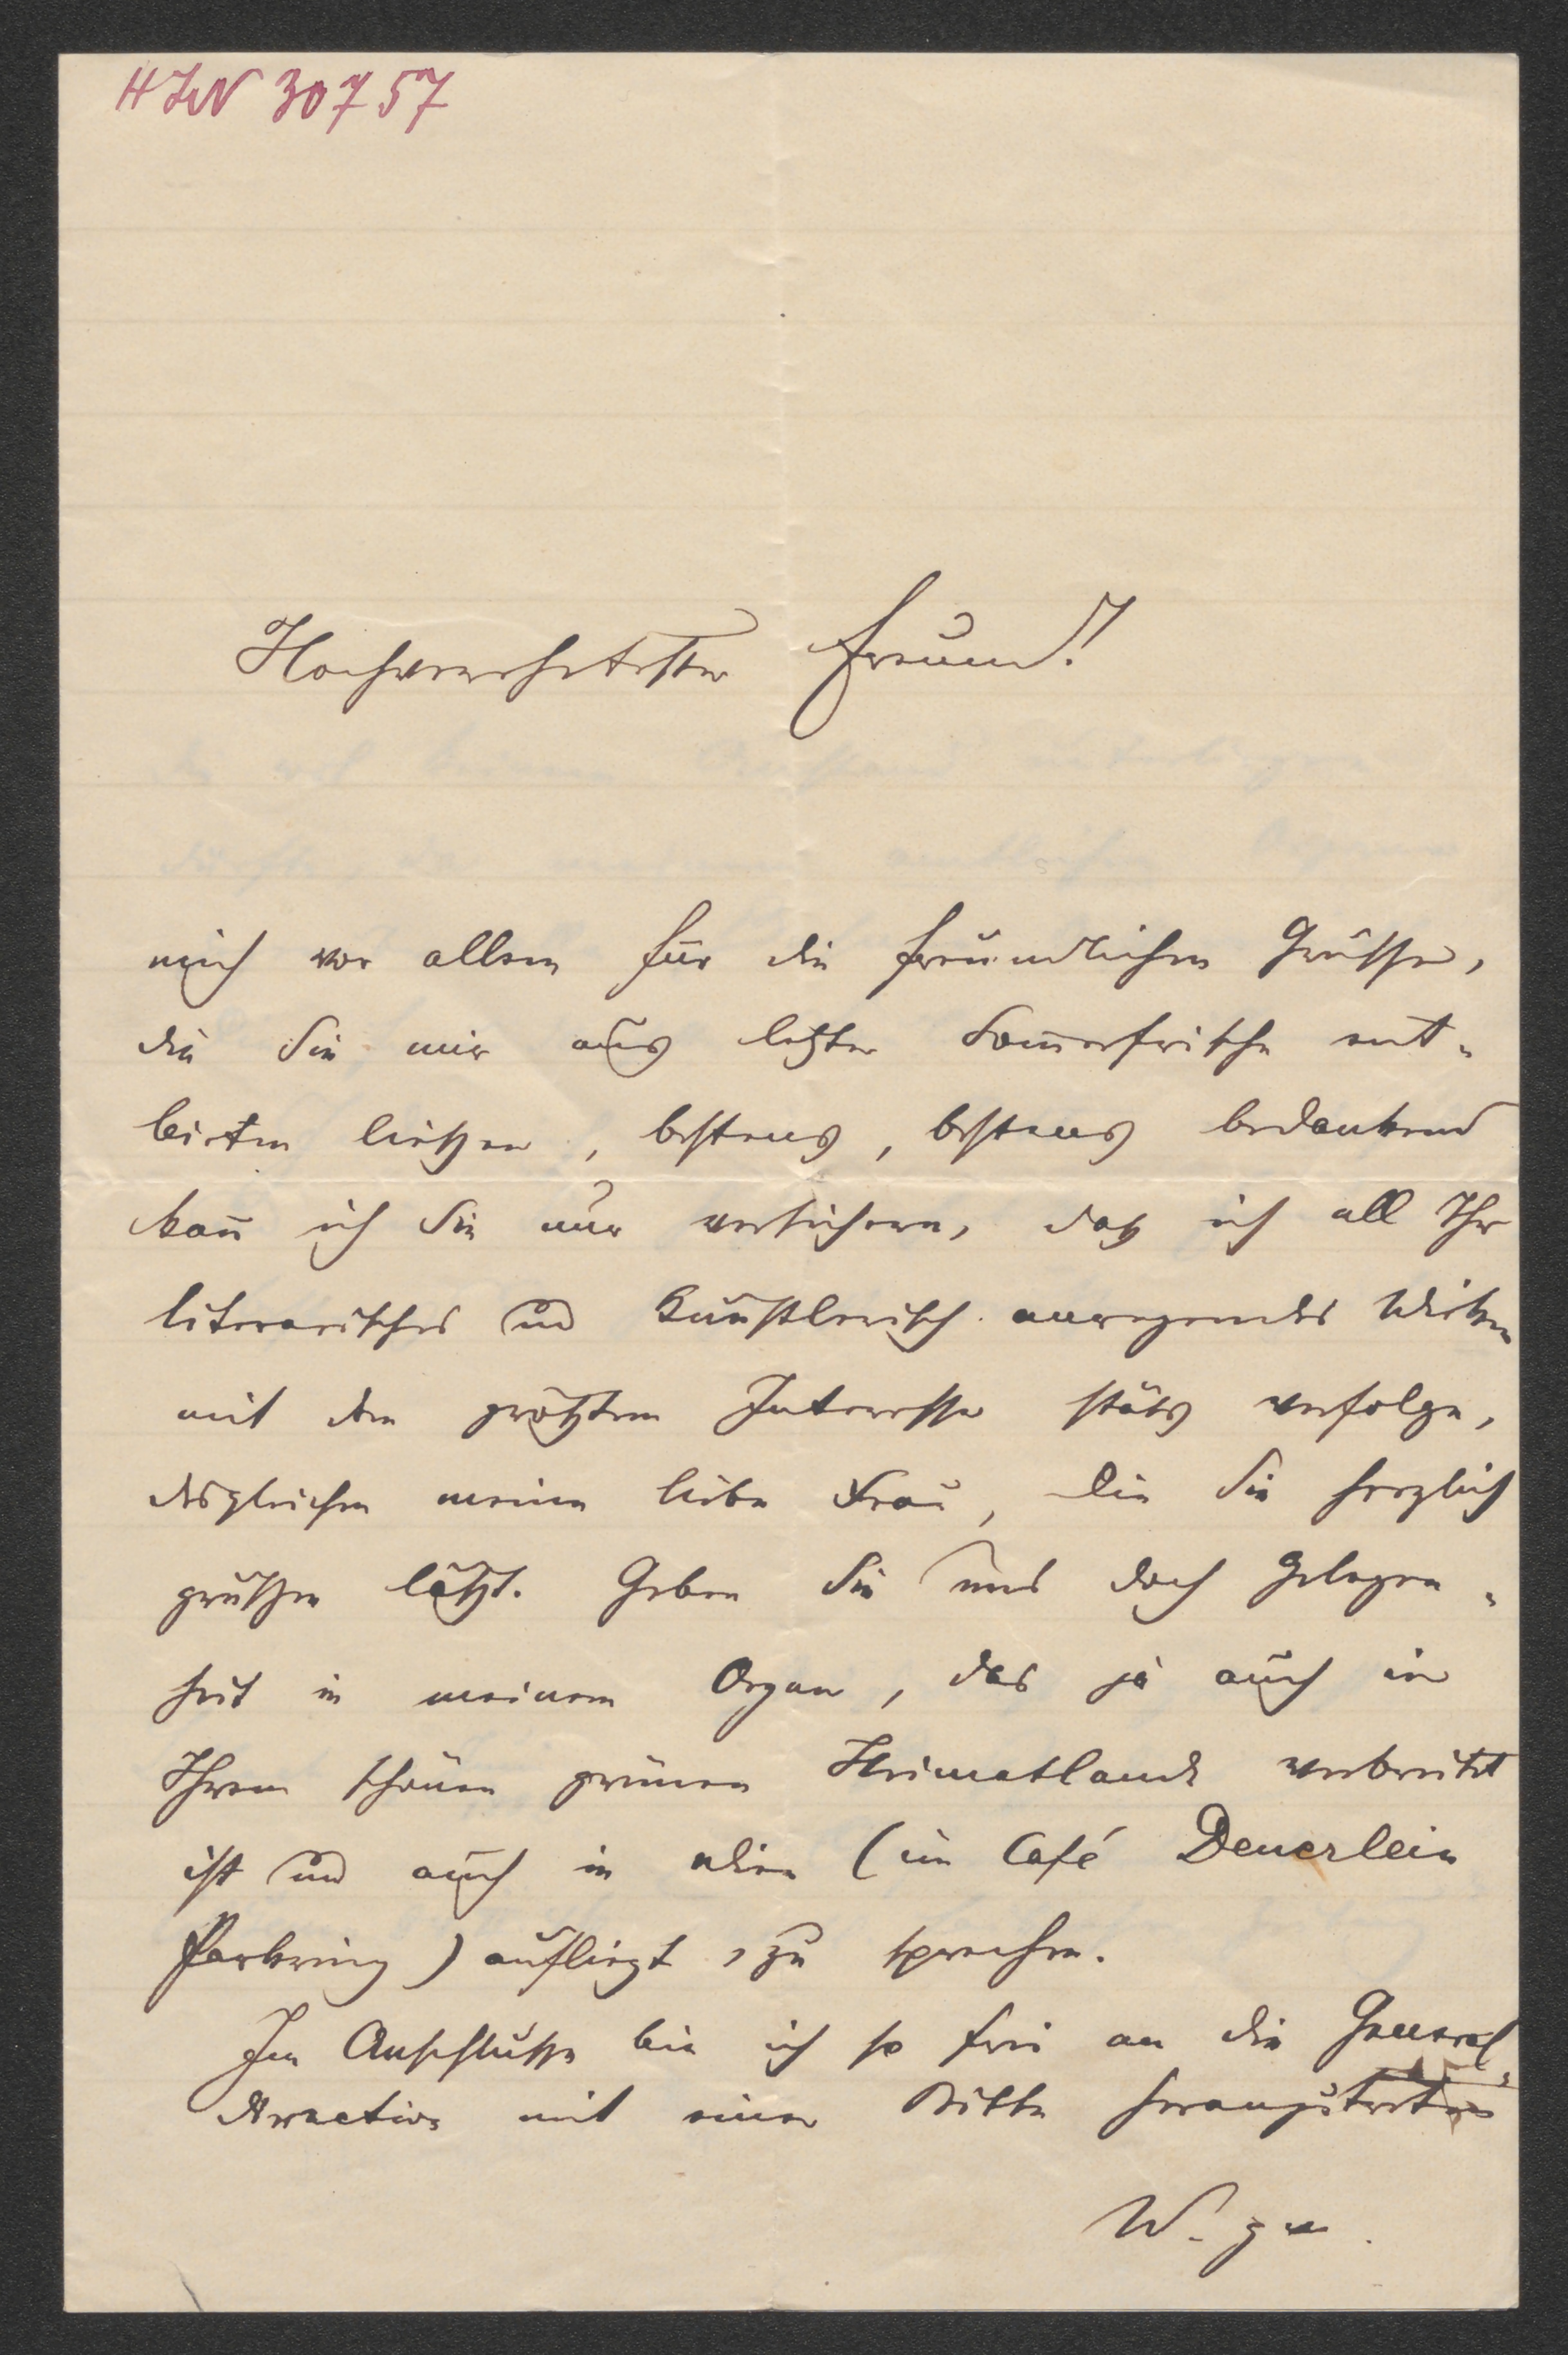 HIN 30757
Hochverehrtester Freund!
mich vor allem für die freundlichen Grüsse,
die Sie mir aus letzter Som̄erfrische ent-
bieten ließen, bestens, bestens bedankend
kan̄ ich Sie nur versichern, daß ich all Ihr
literarisches und künstlerisch anregendes Wirken
mit dem größten Interesse stäts verfolge,
desgleichen meine liebe Frau, die Sie herzlich
grüßen läßt. Geben Sie uns doch Gelegen-
heit in meinem Organ, das ja auch in
Ihrem schönen grünen Heimatlande verbreitet
ist und auch in Wien (im Café Deuerlein
Parkring) aufliegt, zu sprechen.
Im Anschlusse bin ich so frei an die General-
direction mit einer Bitte heranzutreten
W.